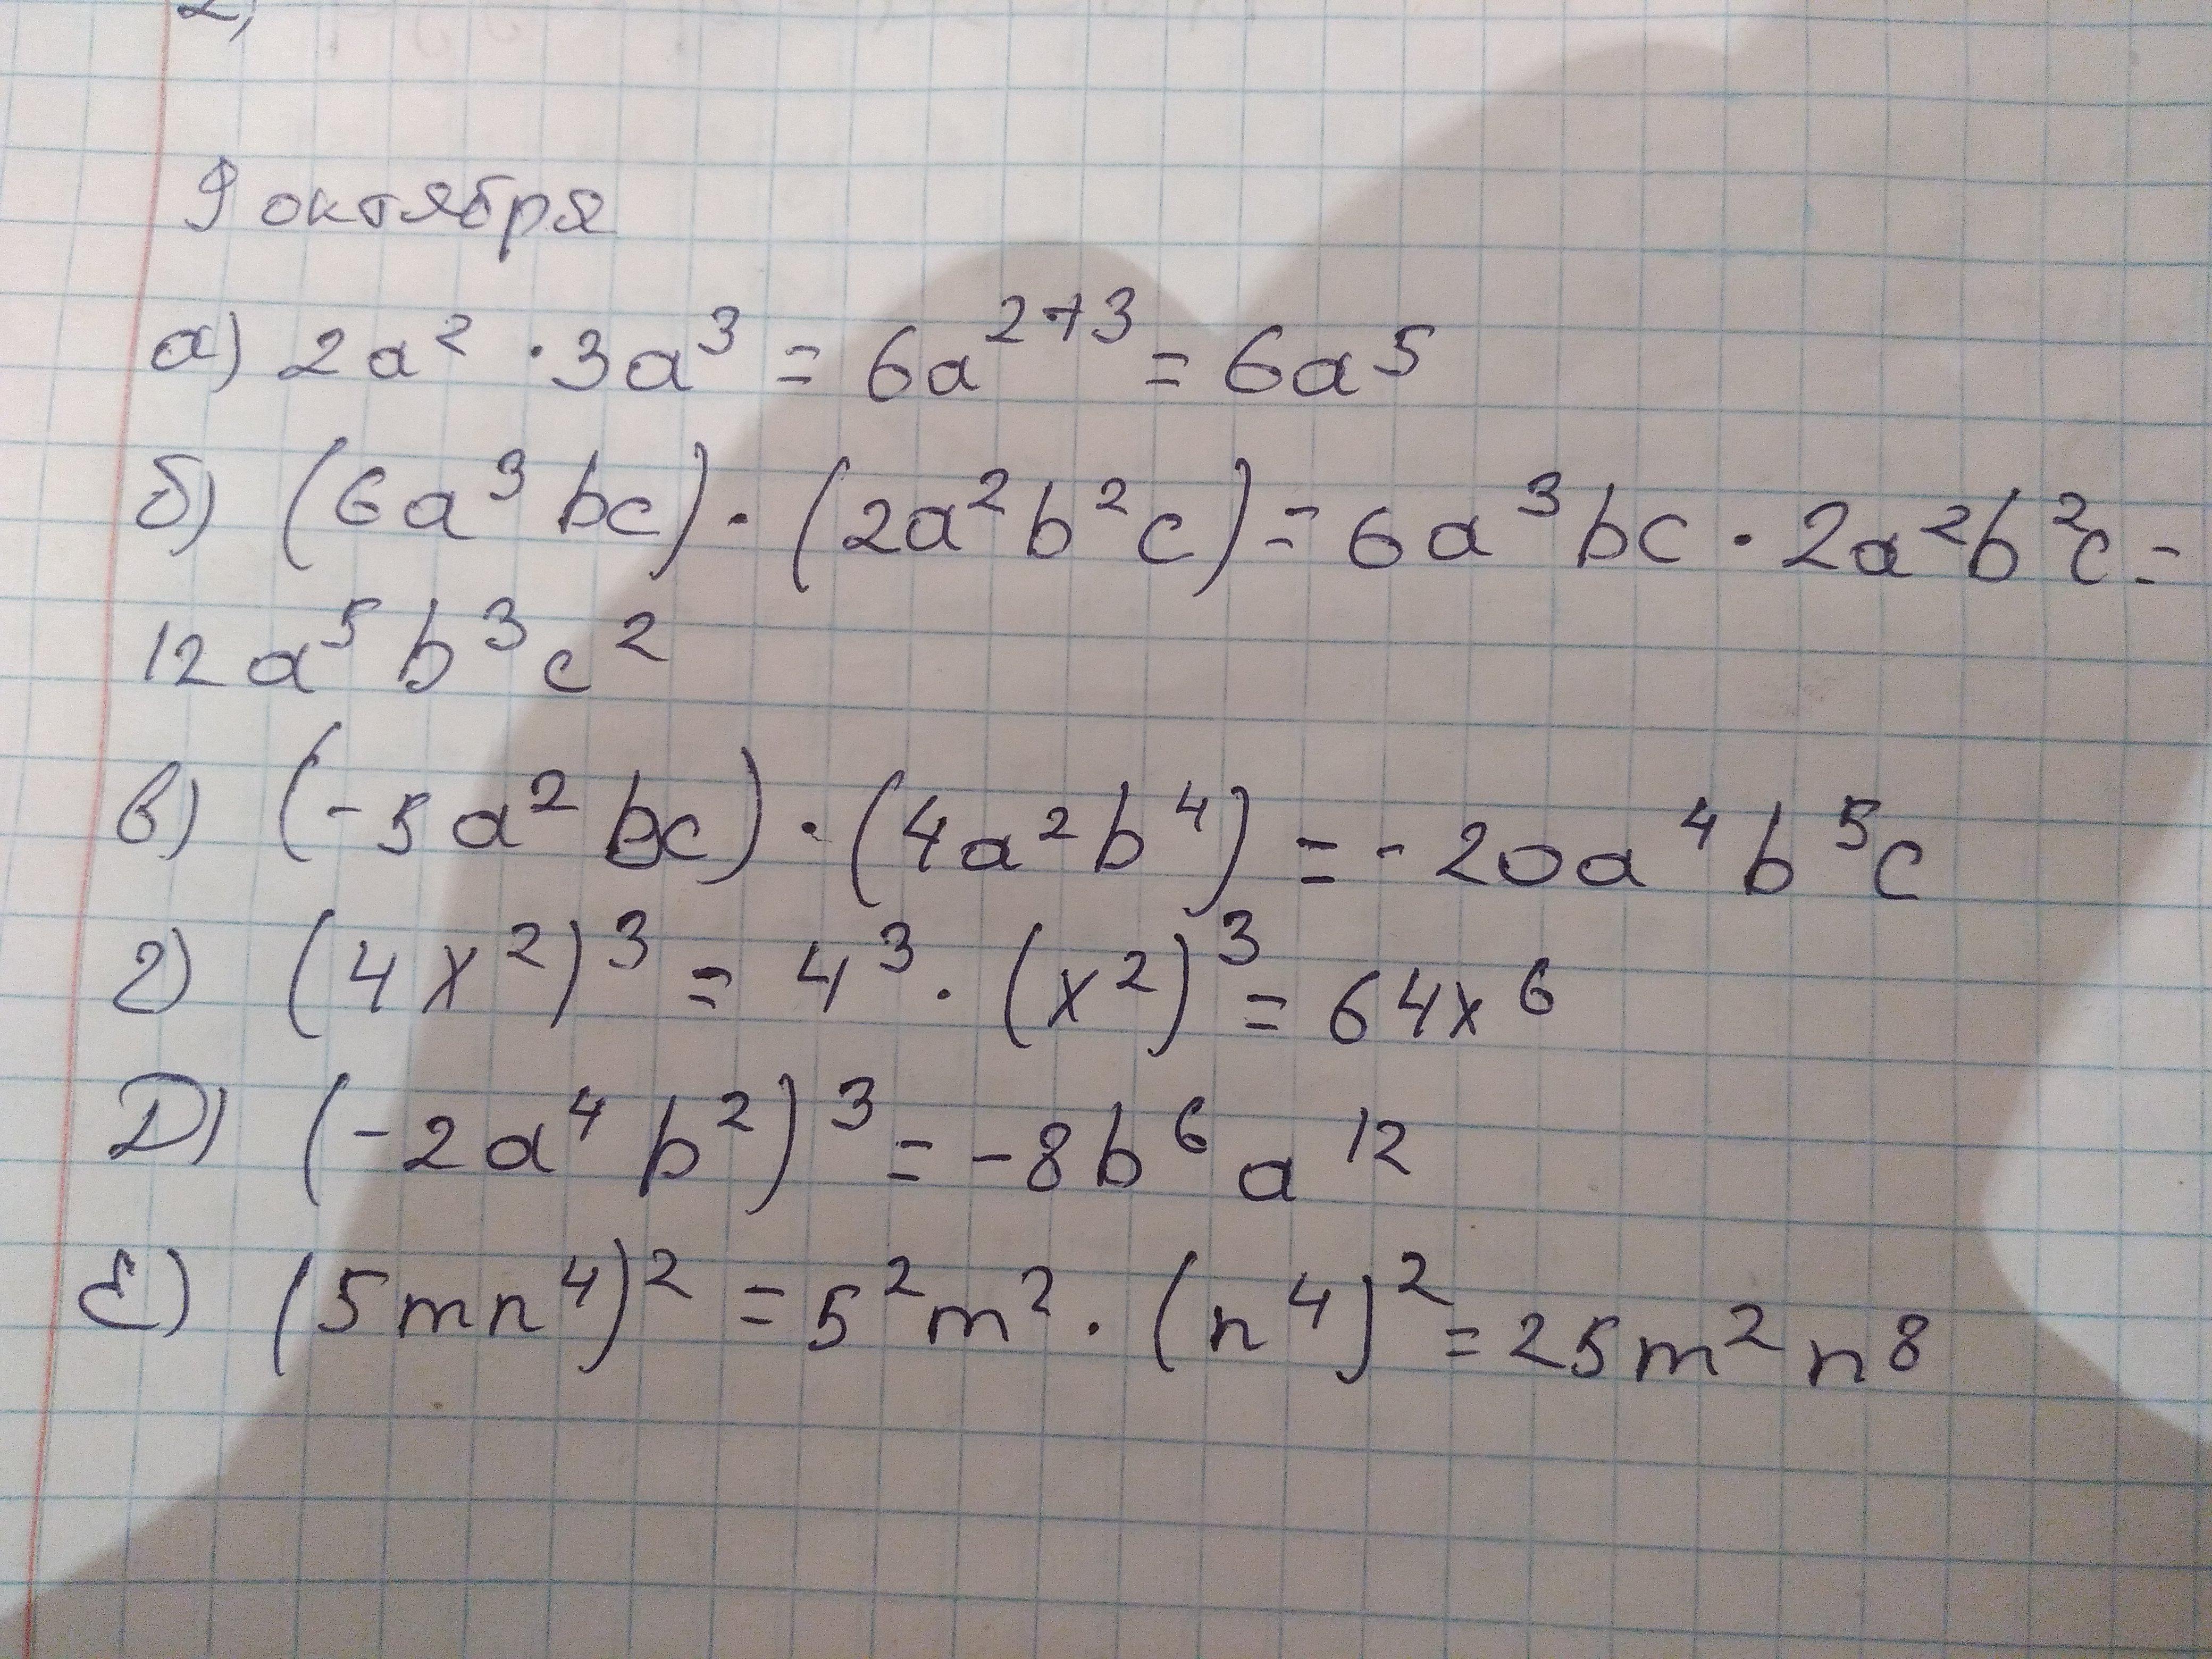 2)
9 октября
а) 2a² · 3a³ = 6a²⁺³ = 6a⁵
б) (6a³bc) · (2a²b²c) = 6a³bc · 2a²b²c =
12a⁵b³c²
в) (-5a²bc) · (4a²b⁴) = -20a⁴b⁵c
г) (4x²)³ = 4³ · (x²)³ = 64x⁶
Д) (-2a⁴b²)³ = -8b⁶a¹²
Е) (5mn⁴)² = 5²m² · (n⁴)² = 25m²n⁸